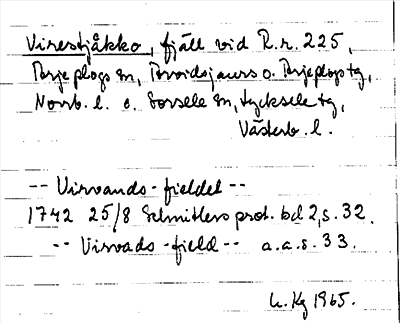 Virestjåkko, fjäll vid R.r. 225,
Arjeplogs sn, Arvidsjaurs o. Arjeplogs tg,
Norrb. l. o. Sorsele sn, Lycksele tg,
Västerb. l.
-- Virvands-fieldet --
1742 25/8 Schnitlers prot. bd 2, s. 32.
-- Virvads-field -- a.a.s. 33.
L. Kg 1965.